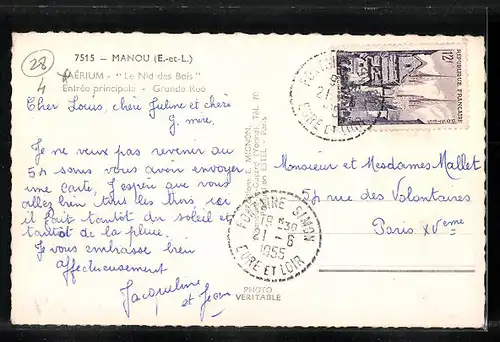 28
4
7515 - MANOU (E.-et-L.)
AÉRIUM - "Le Nid des Bois"
Entrée principale - Grande Rue
Cher Louis, chère Juline et chère
g. mère,
Je ne veux pas revenir au
54 sans vous avoir envoyer
une carte, J'espère que vous
allez bien tous les trois, ici
il fait tantôt du soleil et
tantôt de la pluie.
Je vous embrasse bien
affectueusement
Jacqueline
et Jean
E. MIGNON,
PHOTO
VERITABLE
12F
REPUBLIQUE FRANÇAISE
21
EURE ET LOIR
FONTAINE SIMON
21 - 6
1955
EURE ET LOIR
Monsieur et Mesdames Mallet
54 rue des Volontaires
Paris XVème